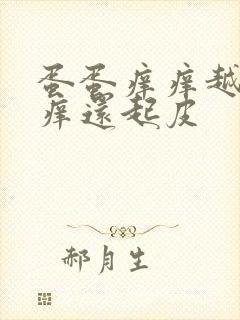 蛋蛋痒痒越
痒还起皮
郝月生